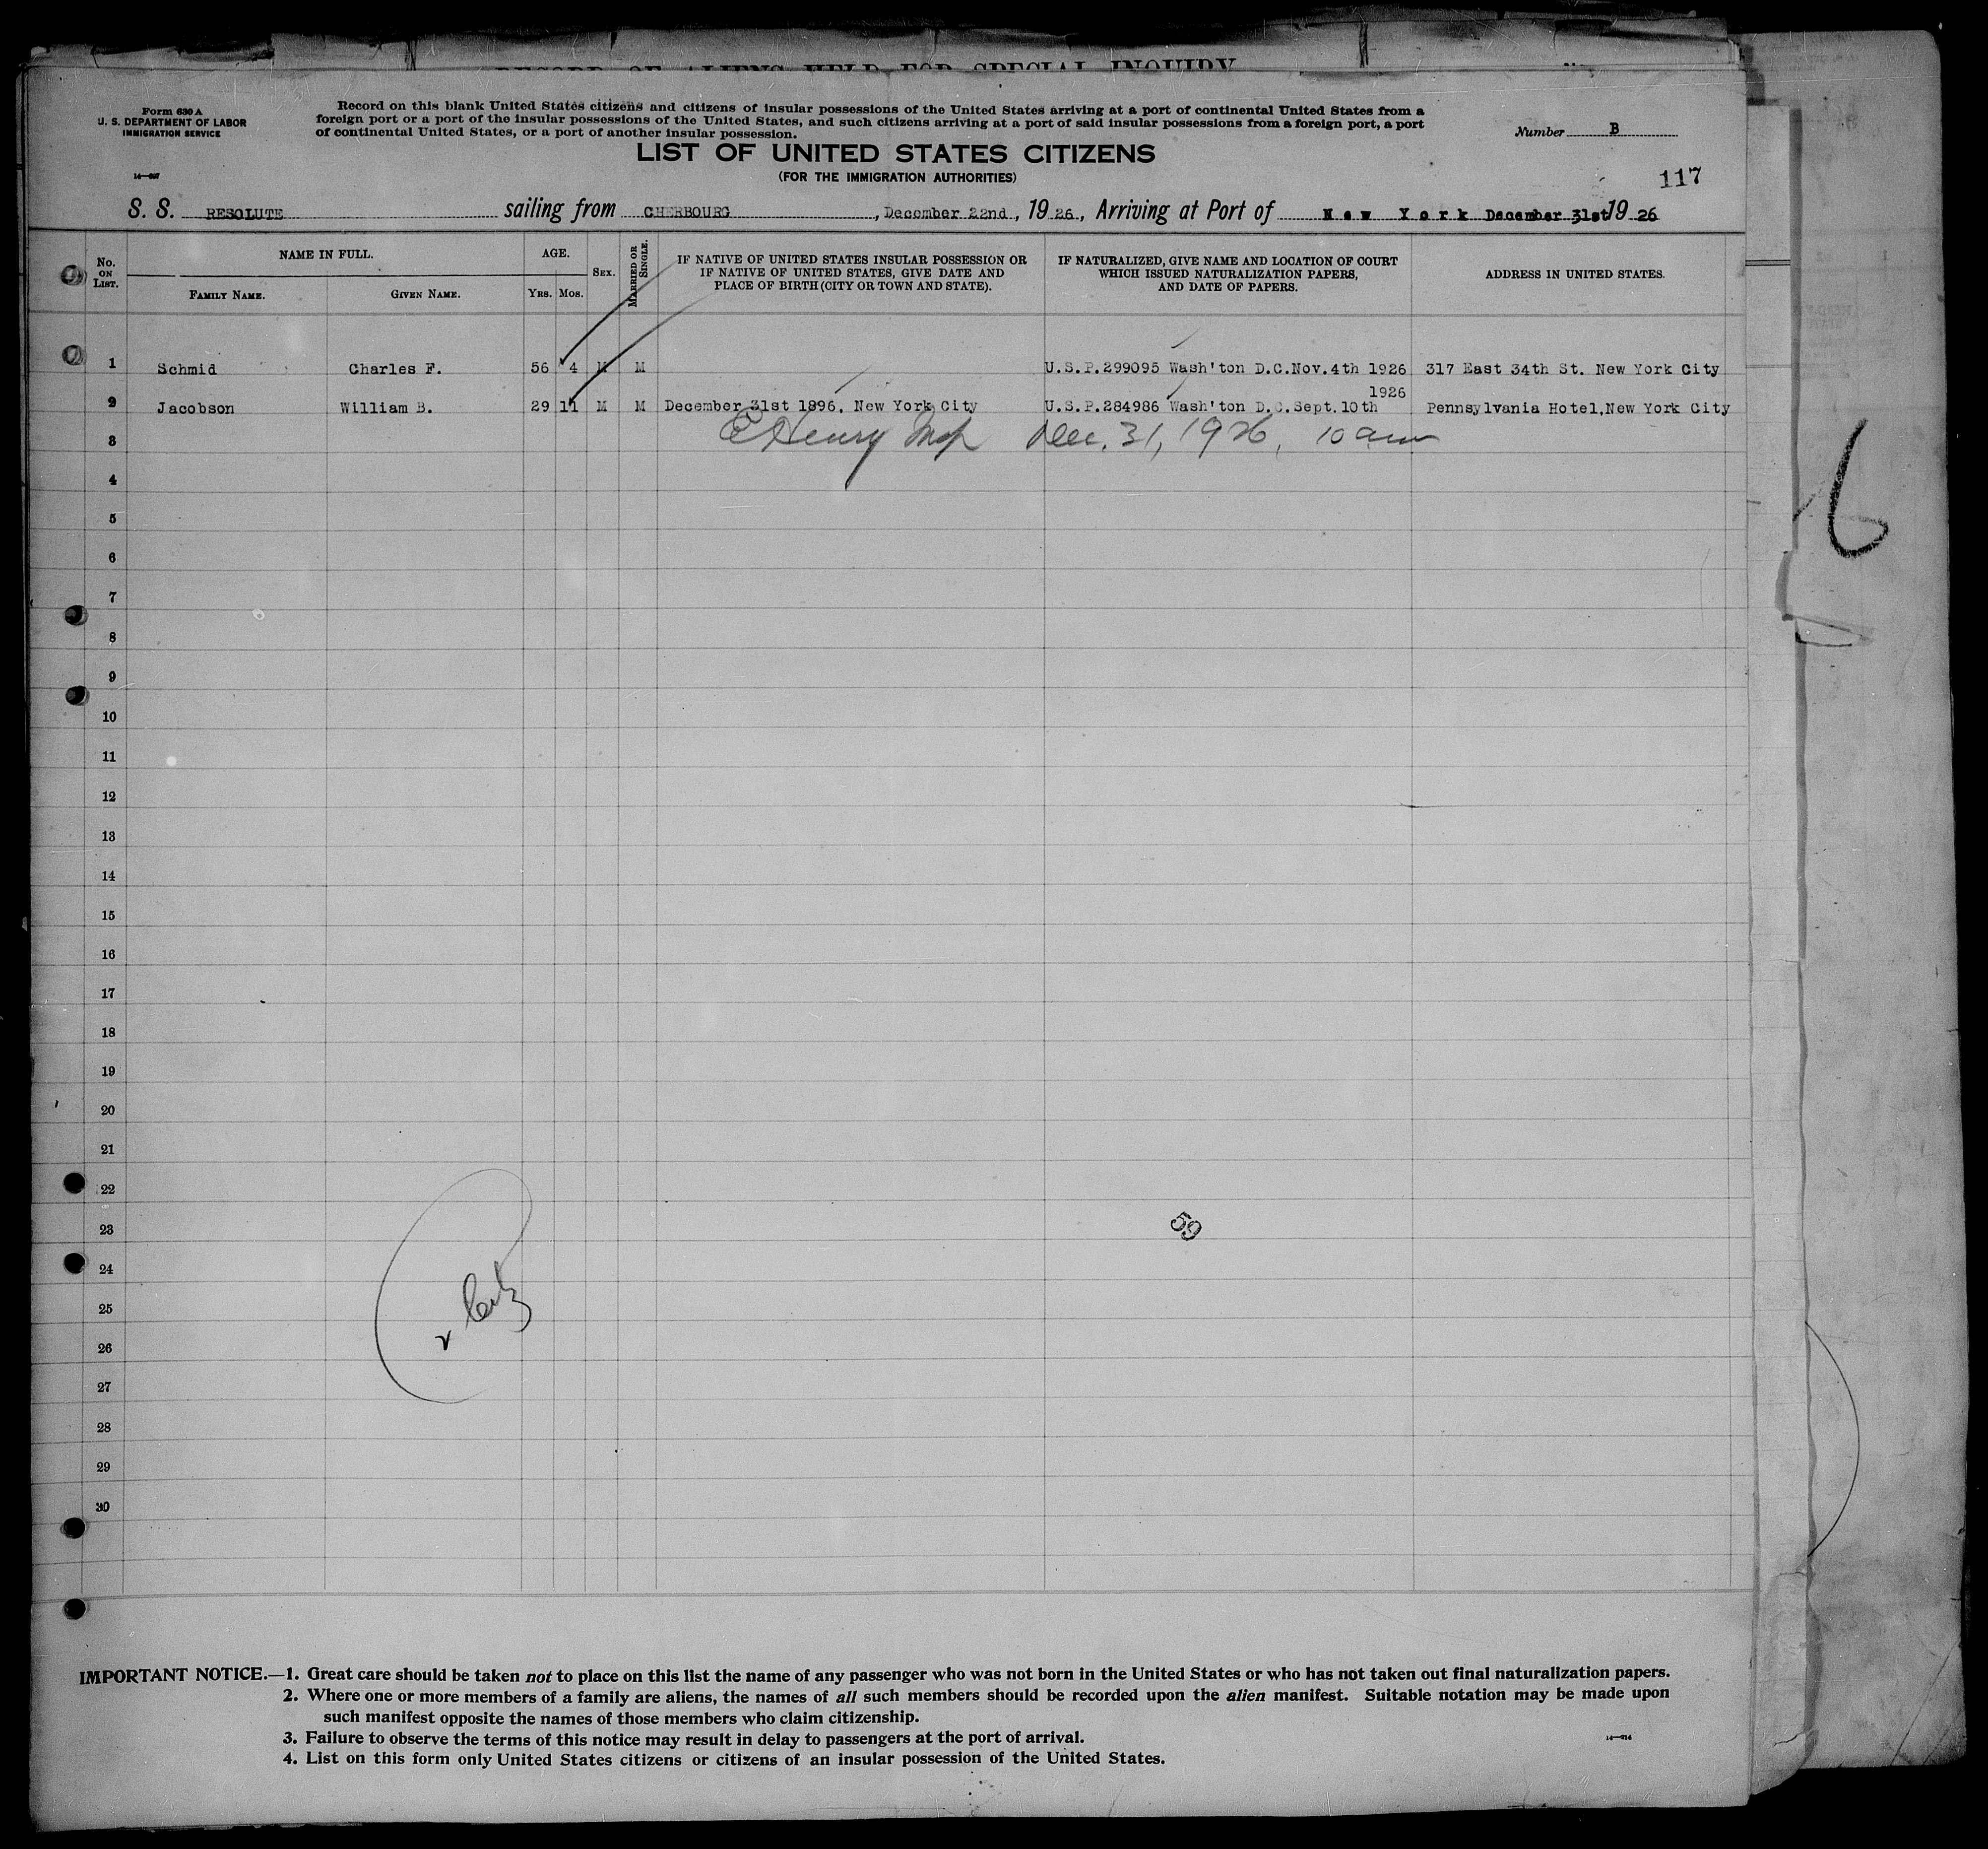 RECORD OF ALIENS HELD FOR SPECIAL INQUIRY
Form 630 A
U. S. DEPARTMENT OF LABOR
IMMIGRATION SERVICE
Record on this blank United States citizens and citizens of insular possessions of the United States arriving at a port of continental United States from a
foreign port or a port of the insular possessions of the United States, and such citizens arriving at a port of said insular possessions from a foreign port, a port
of continental United States, or a port of another insular possession.
Number B
LIST OF UNITED STATES CITIZENS
(FOR THE IMMIGRATION AUTHORITIES)
117
S. S. RESOLUTE sailing from CHERBOURG, December 22nd, 1926, Arriving at Port of New York December 31st 1926
No. ON LIST. NAME IN FULL. AGE. SEX. MARRIED OR SINGLE. IF NATIVE OF UNITED STATES INSULAR POSSESSION OR IF NATIVE OF UNITED STATES, GIVE DATE AND PLACE OF BIRTH (CITY OR TOWN AND STATE). IF NATURALIZED, GIVE NAME AND LOCATION OF COURT WHICH ISSUED NATURALIZATION PAPERS, AND DATE OF PAPERS. ADDRESS IN UNITED STATES.
FAMILY NAME. GIVEN NAME. YRS. MOS.
1 Schmid Charles F. 56 4 M M U.S.P.299095 Wash'ton D.C.Nov.4th 1926 317 East 34th St. New York City
1926
2 Jacobson William B. 29 11 M M December 31st 1896, New York City U.S.P.284986 Wash'ton D.C.Sept.10th Pennsylvania Hotel,New York City
3 E Henry Insp Dec. 31, 1926, 10 am
4
5
6
6
7
8
9
10
11
12
13
14
15
16
17
18
19
20
21
22
23
59
24
25
26
27
28
29
30
IMPORTANT NOTICE.—1. Great care should be taken not to place on this list the name of any passenger who was not born in the United States or who has not taken out final naturalization papers.
2. Where one or more members of a family are aliens, the names of all such members should be recorded upon the alien manifest. Suitable notation may be made upon
such manifest opposite the names of those members who claim citizenship.
3. Failure to observe the terms of this notice may result in delay to passengers at the port of arrival.
4. List on this form only United States citizens or citizens of an insular possession of the United States.